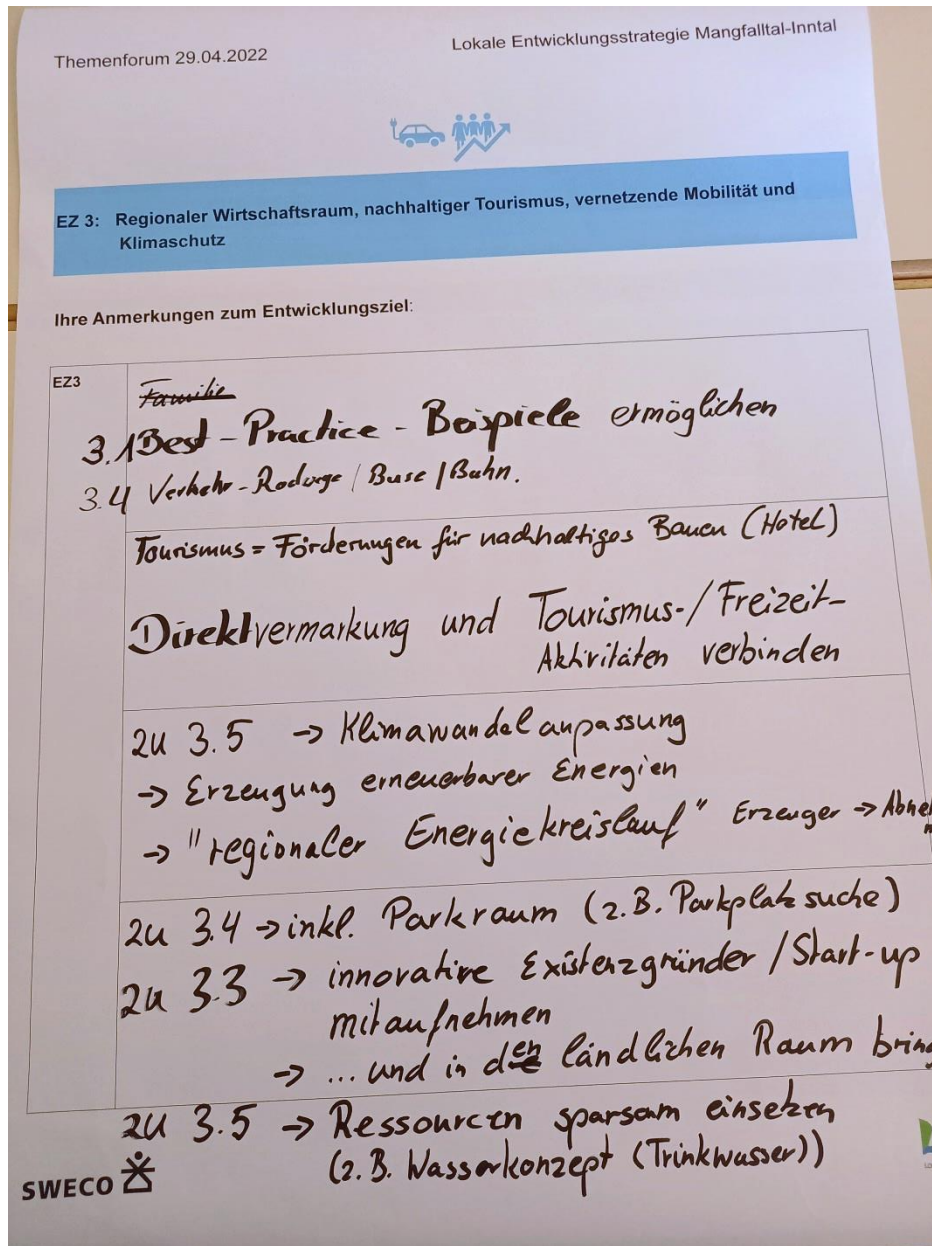 Themenforum 29.04.2022
Lokale Entwicklungsstrategie Mangfalltal-Inntal
EZ 3: Regionaler Wirtschaftsraum, nachhaltiger Tourismus, vernetzende Mobilität und
Klimaschutz
Ihre Anmerkungen zum Entwicklungsziel:
EZ3
Familie
3.1 Best-Practice-Beispiele ermöglichen
3.4 Verkehr- / Buse / Bahn.
Tourismus = Förderungen für nachhaltiges Bauen (Hotel)
Direktvermarkung und Tourismus-/Freizeit-
Aktivitäten verbinden
zu 3.5 → Klimawandelanpassung
→ Erzeugung erneuerbarer Energien
→ "regionaler Energiekreislauf" Erzeuger →
zu 3.4 → inkl. Parkraum (z.B. Parkplatzsuche)
zu 3.3 → innovative Existenzgründer / Start-up
mitaufnehmen
→ ... und in den ländlichen Raum
zu 3.5 → Ressourcen sparsam einsetzen
(z.B. Wasserkonzept (Trinkwasser))
SWECO